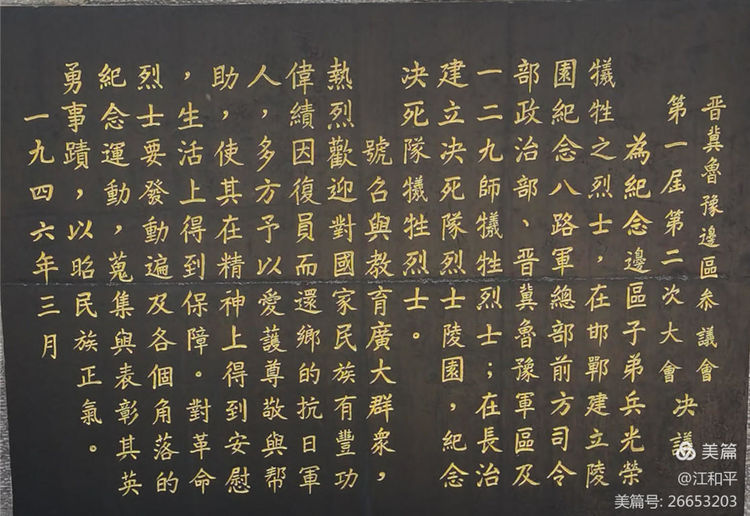 晋冀魯豫邊區參議會
第一屆第二次大會 决議
為紀念邊區子弟兵光榮
犧牲之烈士，在邯鄲建立陵
園紀念八路軍總部前方司令
部政治部、晋冀魯豫軍區及
一二九師犧牲烈士；在長治
建立决死隊烈士陵園，紀念
决死隊犧牲烈士。
號召與教育廣大群衆，
熱烈歡迎對國家民族有豐功
偉績因復員而還鄉的抗日軍
人，多方予以愛護尊敬與幫
助，使其在精神上得到安慰
，生活上得到保障。對革命
烈士要發動遍及各個角落的
紀念運動，蒐集與表彰其英
勇事蹟，以昭民族正氣。
一九四六年三月
美篇
@江和平
美篇号: 26653203